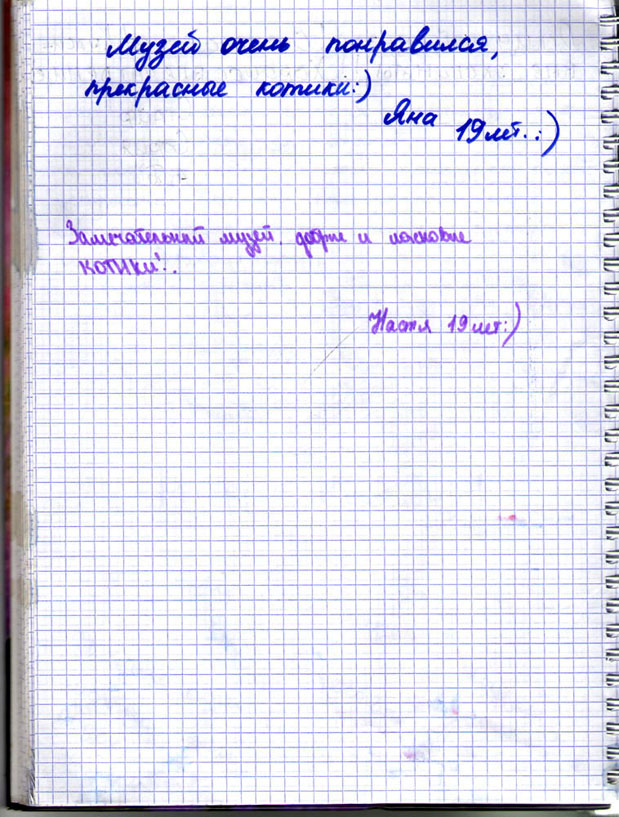 Музей очень понравился,
прекрасные котики:)
Яна 19 лет.:)
Замечательный музей, добрые и ласковые
котики!.
Настя 19 лет:)